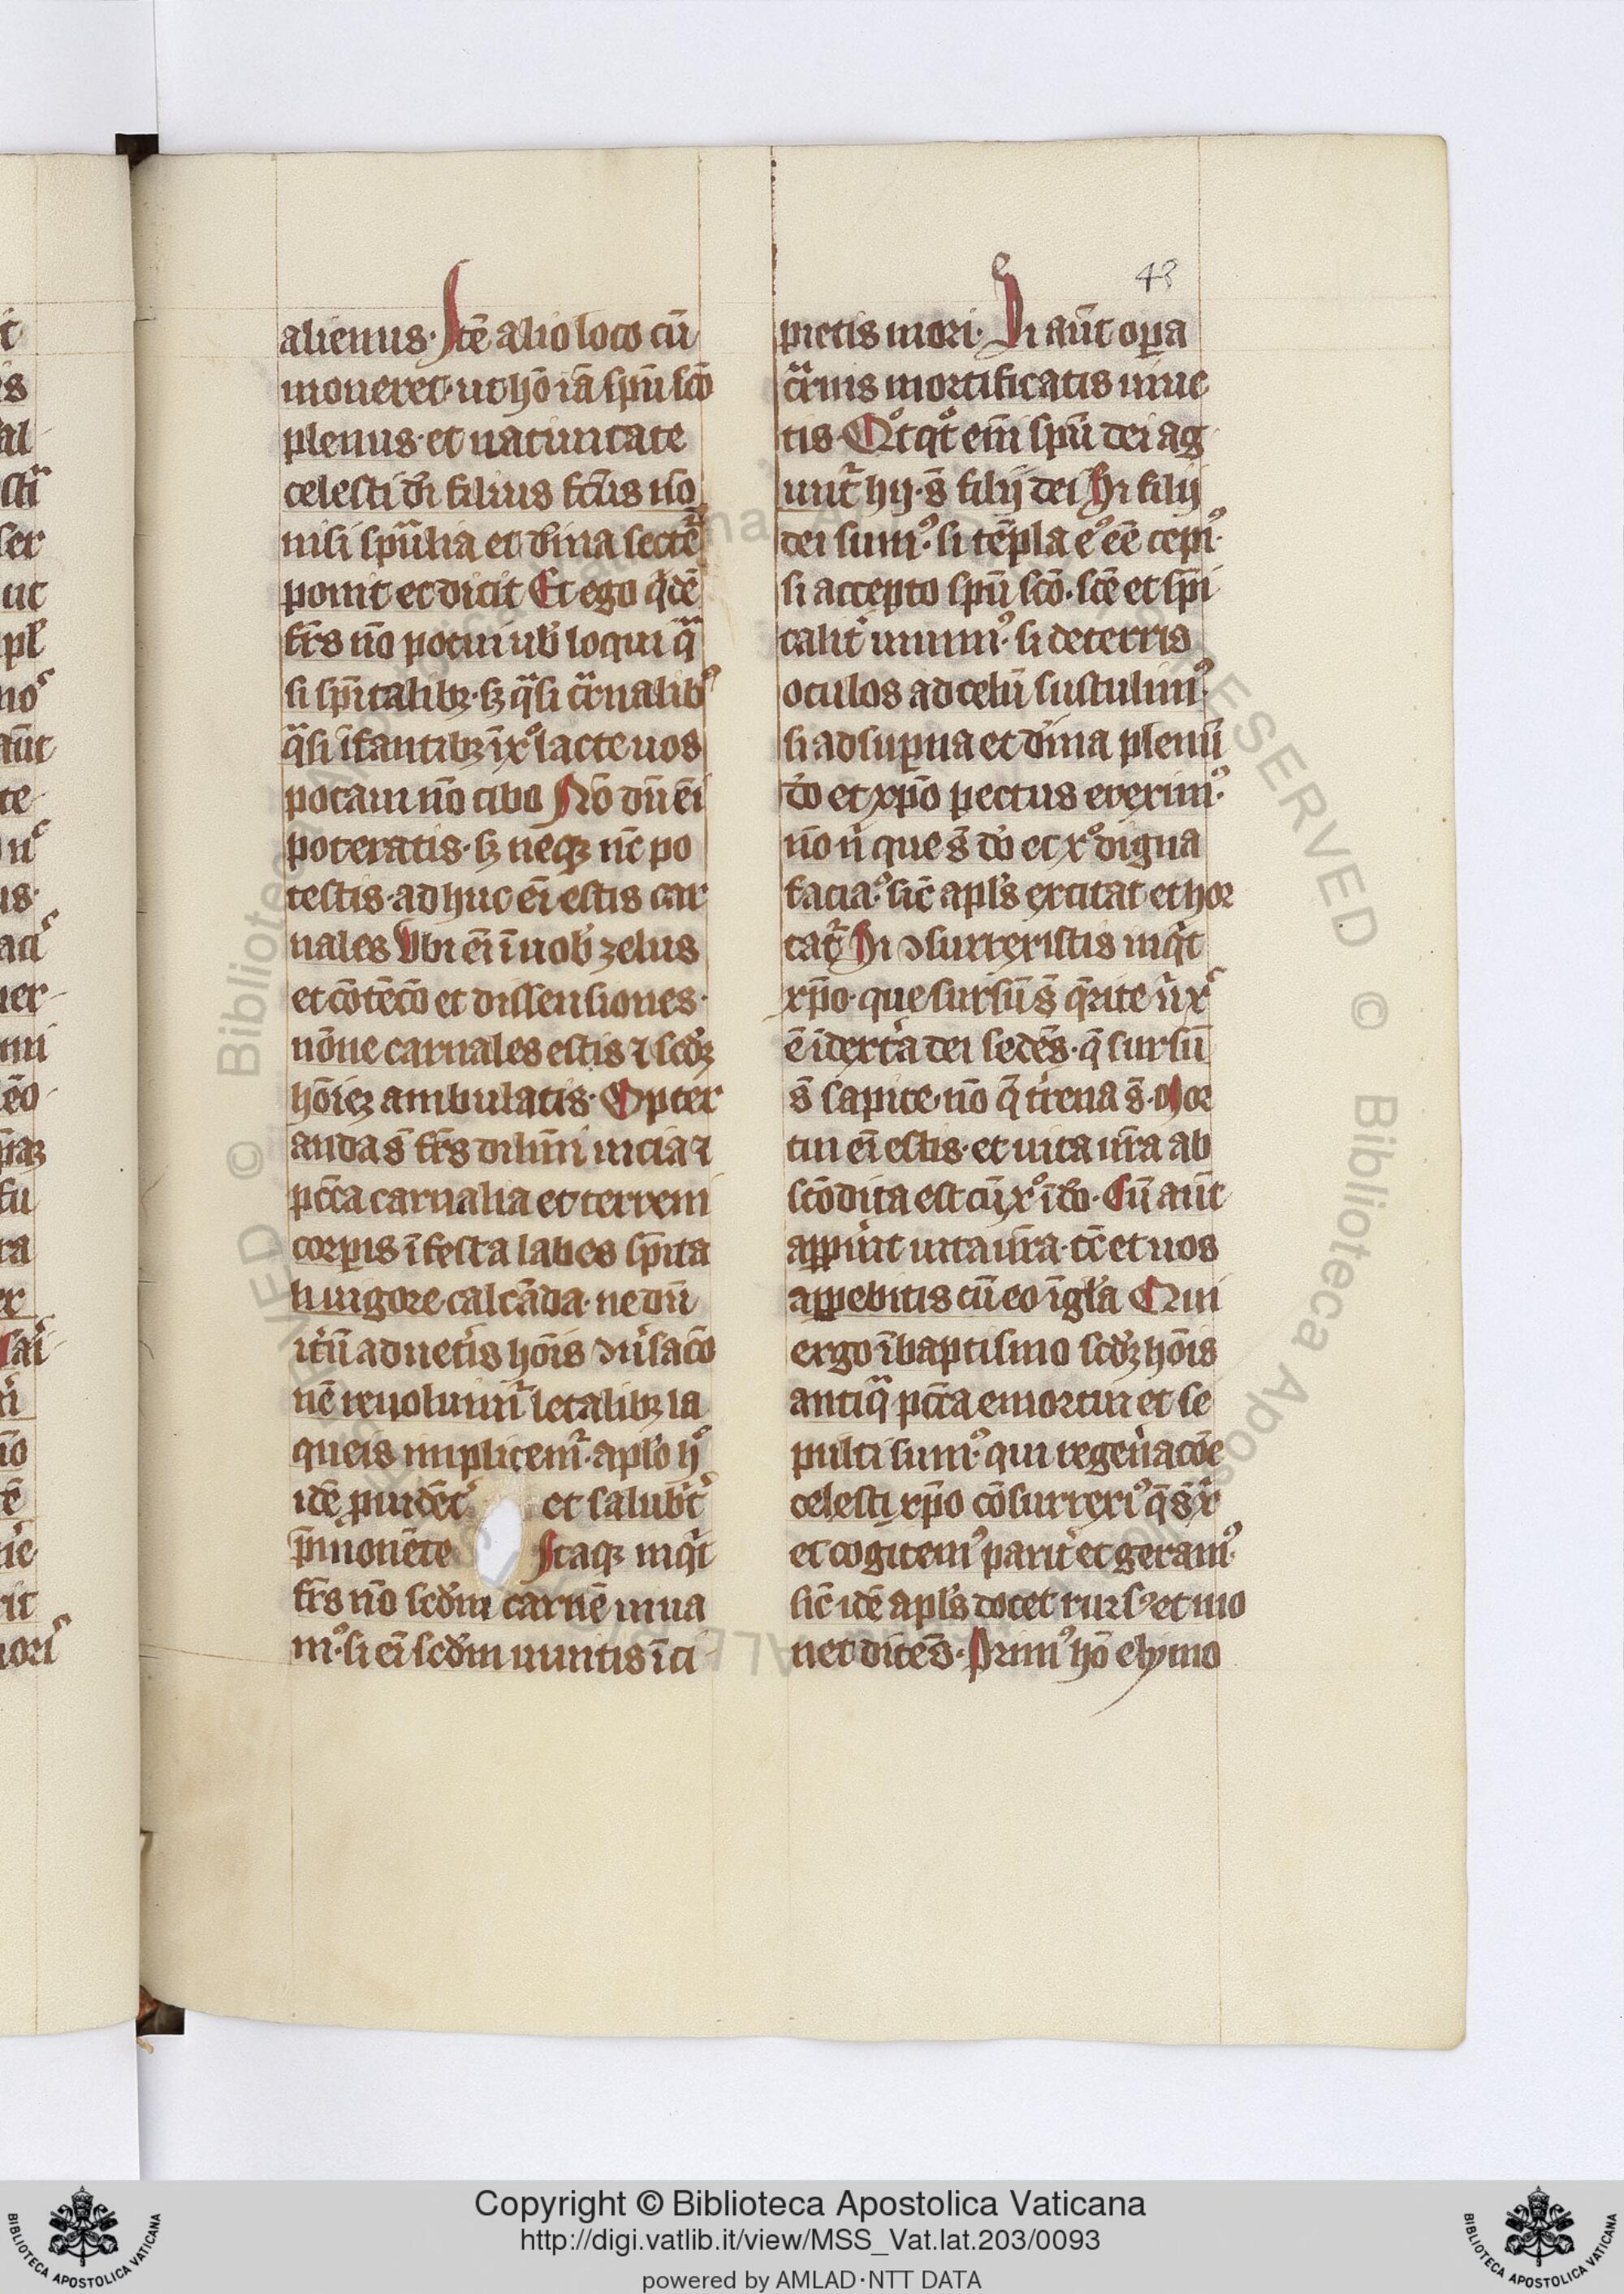 48
alienus· Itē alio loco cū
moneret· ut hō iā spū scō
plenus· et natiuitate
celesti di filius fcūs nō
nisi spūalia et diuina sectēt
ponit et dicit Et ego qidē
frs nō potui uob loqui qa
si spītalibꝫ· sꝫ qasi carnalibꝰ
qasi īfantibꝫ ī xo lacte uos
potaui nō cibo Nō dū eī
poteratis· sꝫ neqꝫ nc po
testis· adhuc eī estis car
nales Vbi eī ī uob zelus
et cōtēcō et dissensiones·
nōne carnales estis ⁊ scdꝫ
hōieꝫ ambulatis· Opter
anda s frs dilmi uicia ⁊
pcca carnalia et terreni
corpis īfesta labes spīta
li uigore calcāda· ne dū
itū ad uetis hōis ↄuisacō
nē reuoluimr letalibꝫ la
queis implicemr· aplo hc
idē puidēt et salubt
pmonēte Itaqꝫ inqit
frs nō scdm carnē uiua
mꝰ· si eī scdm uiuitis īci
pietis mori· Si aūt opa
carnis mortificatis uiue
tis· Qotqot enī spū dei ag
untr hij· s filij dei Si filij
dei sumꝰ· si tēpla eꝰ eē cepiꝰ·
si accepto spū scō· scē et spi
talit uiuimꝰ· si de terris
oculos ad celū sustulimꝰ·
si ad supna et diuina plenū
do et xpo pectus ereximꝰ·
nō n que s do et xo digna
faciaꝰ· sic apls excitat et hor
tatr Si ↄsurrexistis inqit
xpo· que sursū s qrite u xc
ē ī dextra dei sedēs· q sursū
s sapite· nō q trena s· Mor
tui eī estis· et uita ura ab
scōdita est cū xo ī do· Cū aūt
appuit uita ura· tc et uos
appebitis cū eo ī gla Qui
ergo ī baptismo scdꝫ hōis
antiqa pcca emortui et se
pulti sumꝰ· qui regenacōe
celesti xpo cōsurreriꝰ q s xi
et cogitemꝰ parit et geramꝰ·
sic idē apls docet rursꝰ et mo
net dicēs· Primꝰ hō e lymo
Copyright © Biblioteca Apostolica Vaticana
http://digi.vatlib.it/view/MSS_Vat.lat.203/0093
powered by AMLAD·NTT DATA
BIBLIOTECA APOSTOLICA VATICANA
BIBLIOTECA APOSTOLICA VATICANA